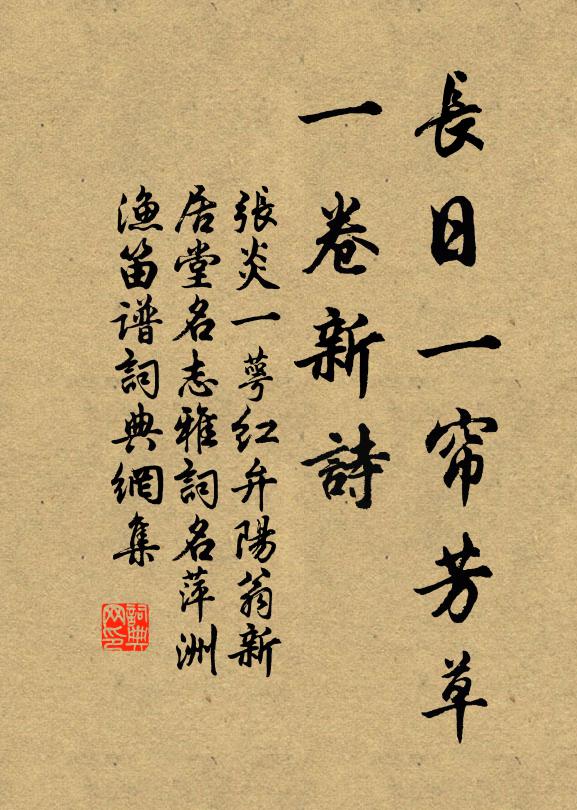 長日一帘芳草
一卷新詩
張炎一萼紅弁陽翁新
居堂名志雅詞名萍洲
漁笛谱詞典網集
詞典
网印